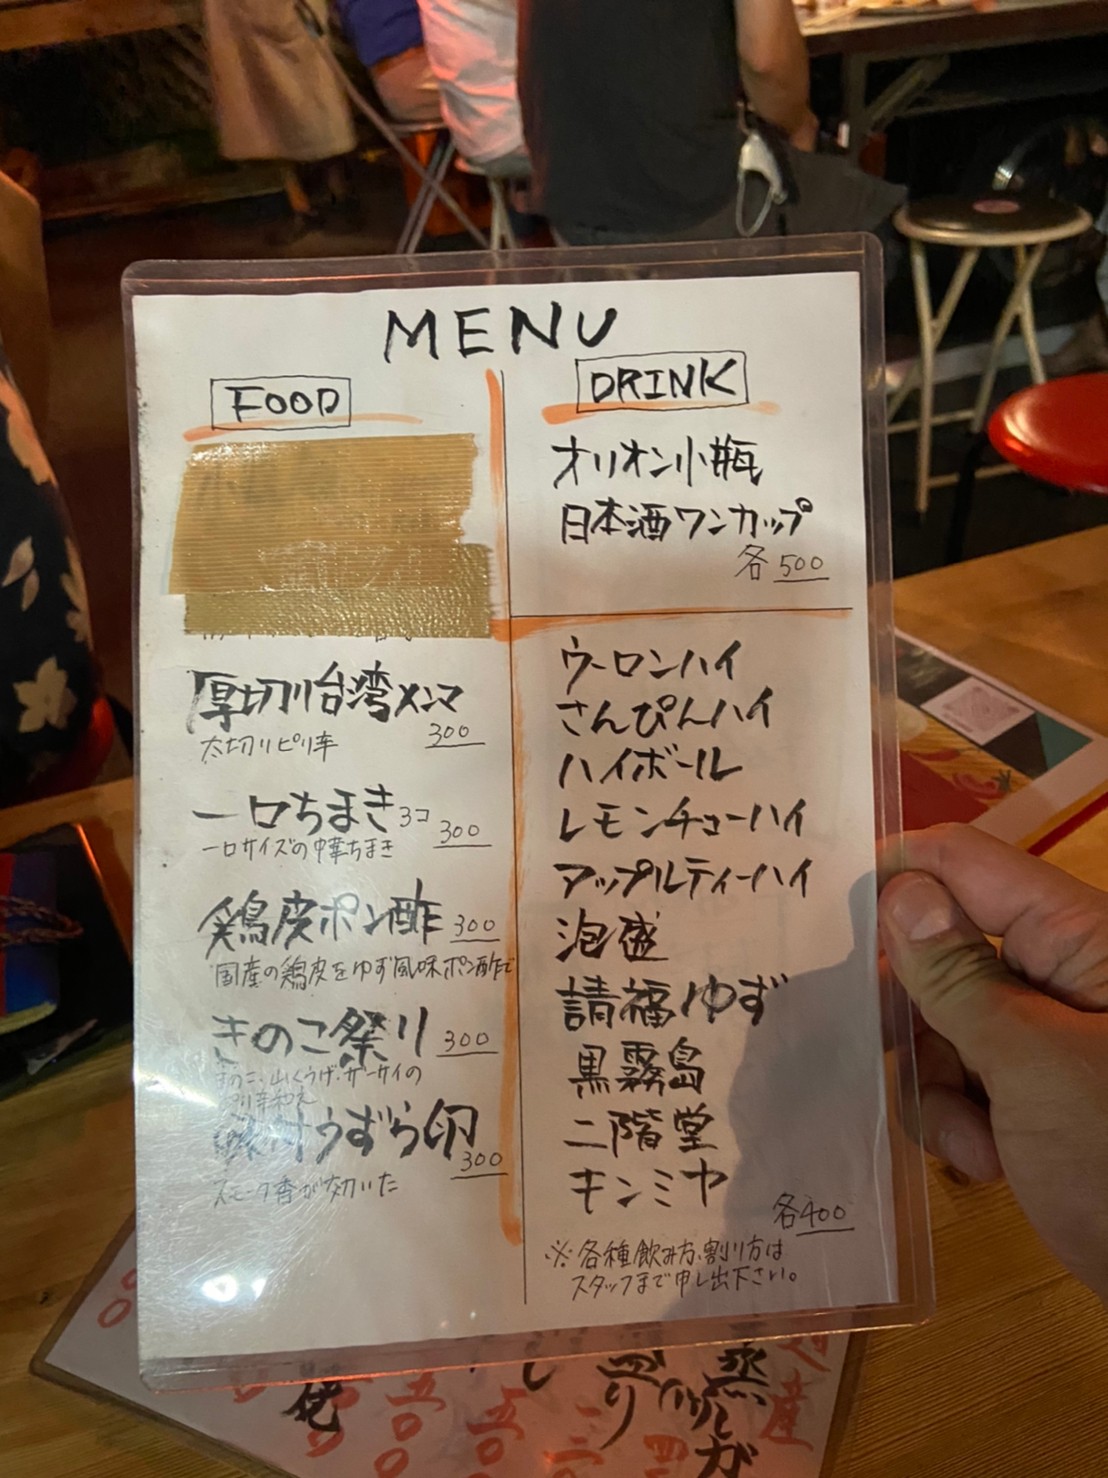 MENU
FOOD
厚切り台湾メンマ
太切りピリ辛
300
一口ちまき3コ
300
一口サイズの中華ちまき
鶏皮ポン酢 300
国産の鶏皮をゆず風味ポン酢で
きのこ祭り 300
きのこ・山くらげ・ザーサイの
ピリ辛和え
味付うずら卵
300
スモーク香が効いた
DRINK
オリオン小瓶
日本酒ワンカップ
各500
ウーロンハイ
さんぴんハイ
ハイボール
レモンチューハイ
アップルティーハイ
泡盛
請福ゆず
黒霧島
二階堂
キンミヤ
各400
※各種飲み方、割り方は
スタッフまで申し出下さい。